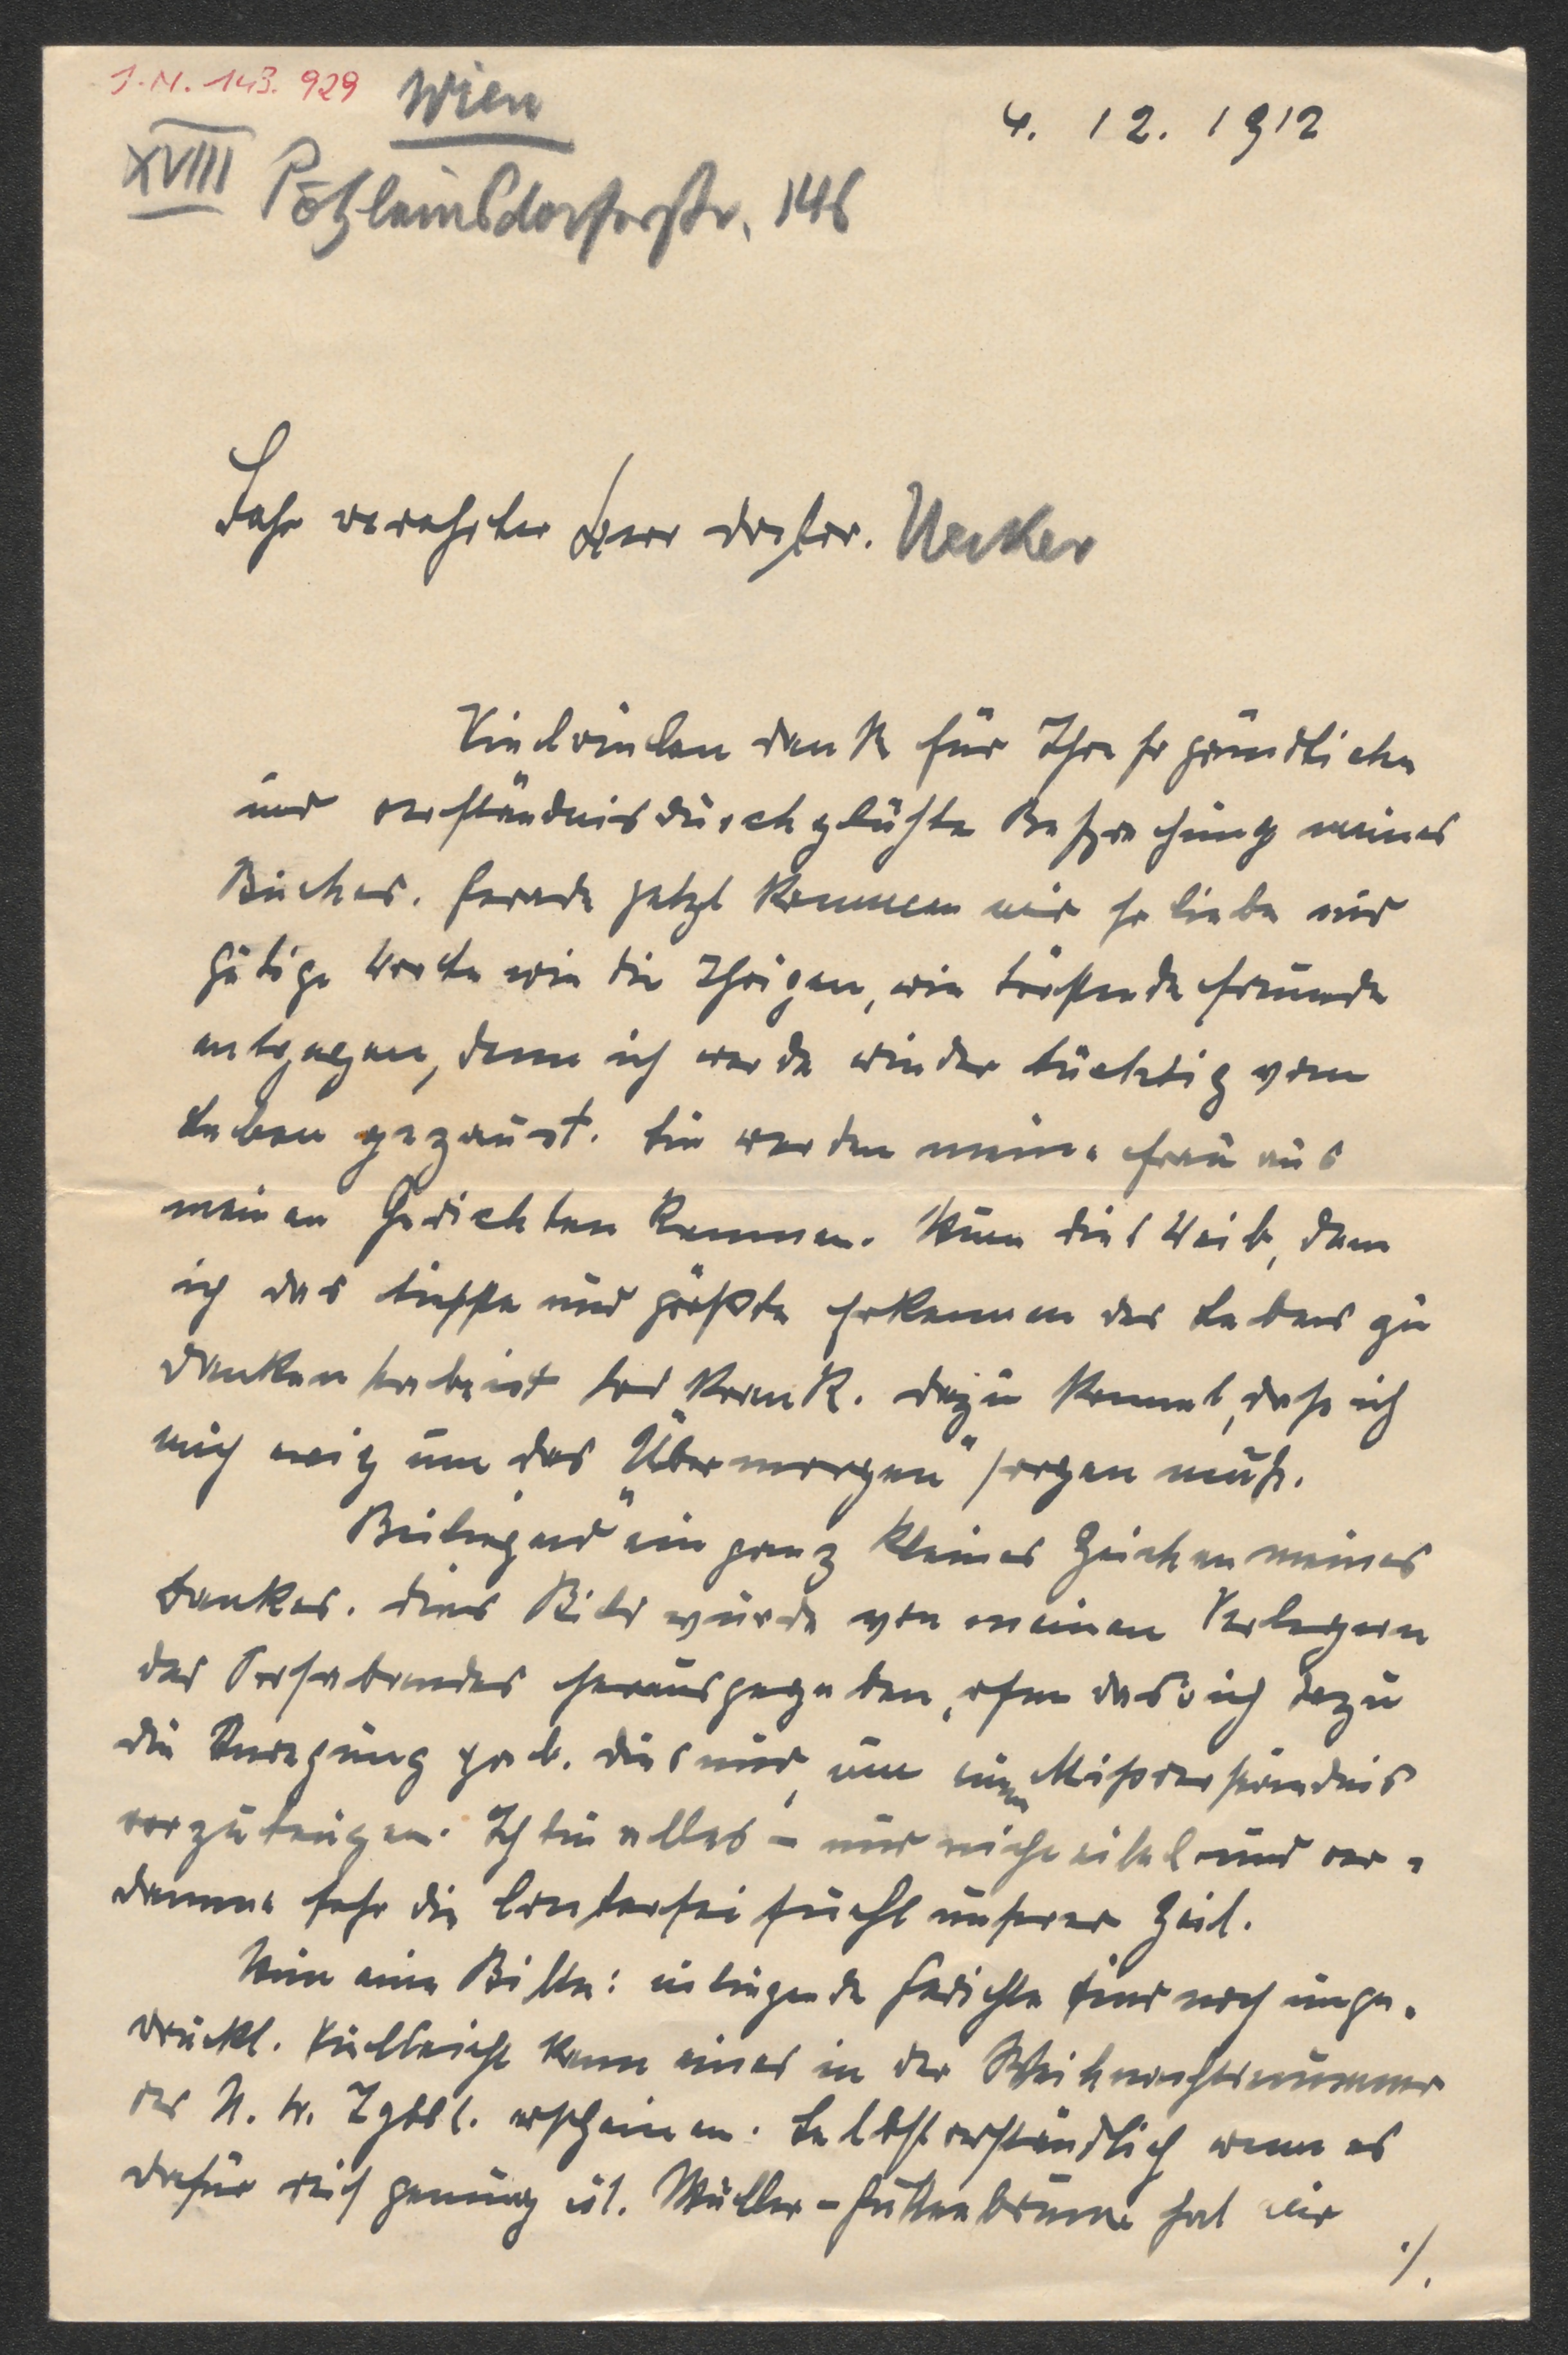 J.N. 143.929
Wien
4. 12. 1912
XVIII Pötzleinsdorferstr. 146
Sehr verehrter Herr doktor. Necker
Vielvielen dank für Ihre so gründliche
und verständnisdurchglühte Besprechung meines
Buches. Gerade jetzt kommen mir so liebe und
gütige Worte wie die Ihrigen, wie tröstende Freunde
entgegen, denn ich werde wieder tüchtig vom
Leben gezaust. Sie werden meine Frau aus
meinen Gedichten kennen. Nun dies Weib, dem
ich das tiefste und größte Erkennen des Lebens zu
danken habe ist tod krank. dazu kommt, dass ich
mich ewig um das „Übermorgen" sorgen muß.
Beiliegend ein ganz kleines Zeichen meines
dankes. dies Bild wurde von meinen Verlegern
des Prosabandes herausgegeben, ohne dass ich dazu
die Anregung gab. dies nur, um einem Missverständnis
vorzubeugen. Ich bin alles – nur nicht eitel und ver-
damme sehr die Conterfeisucht unserer Zeit.
Nun eine Bitte: inliegende Gedichte sind noch unge-
druckt. Vielleicht kann eines in der Weihnachtsnummer
des N. W. Tgbbl. erscheinen. Selbstverständlich wenn es
dafür reif genug ist. Müller-Guttenbrunn hat mir
./.